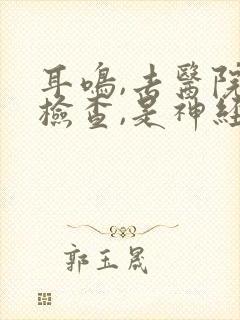 耳鳴,去醫院
檢查,是神経
郭玉晟